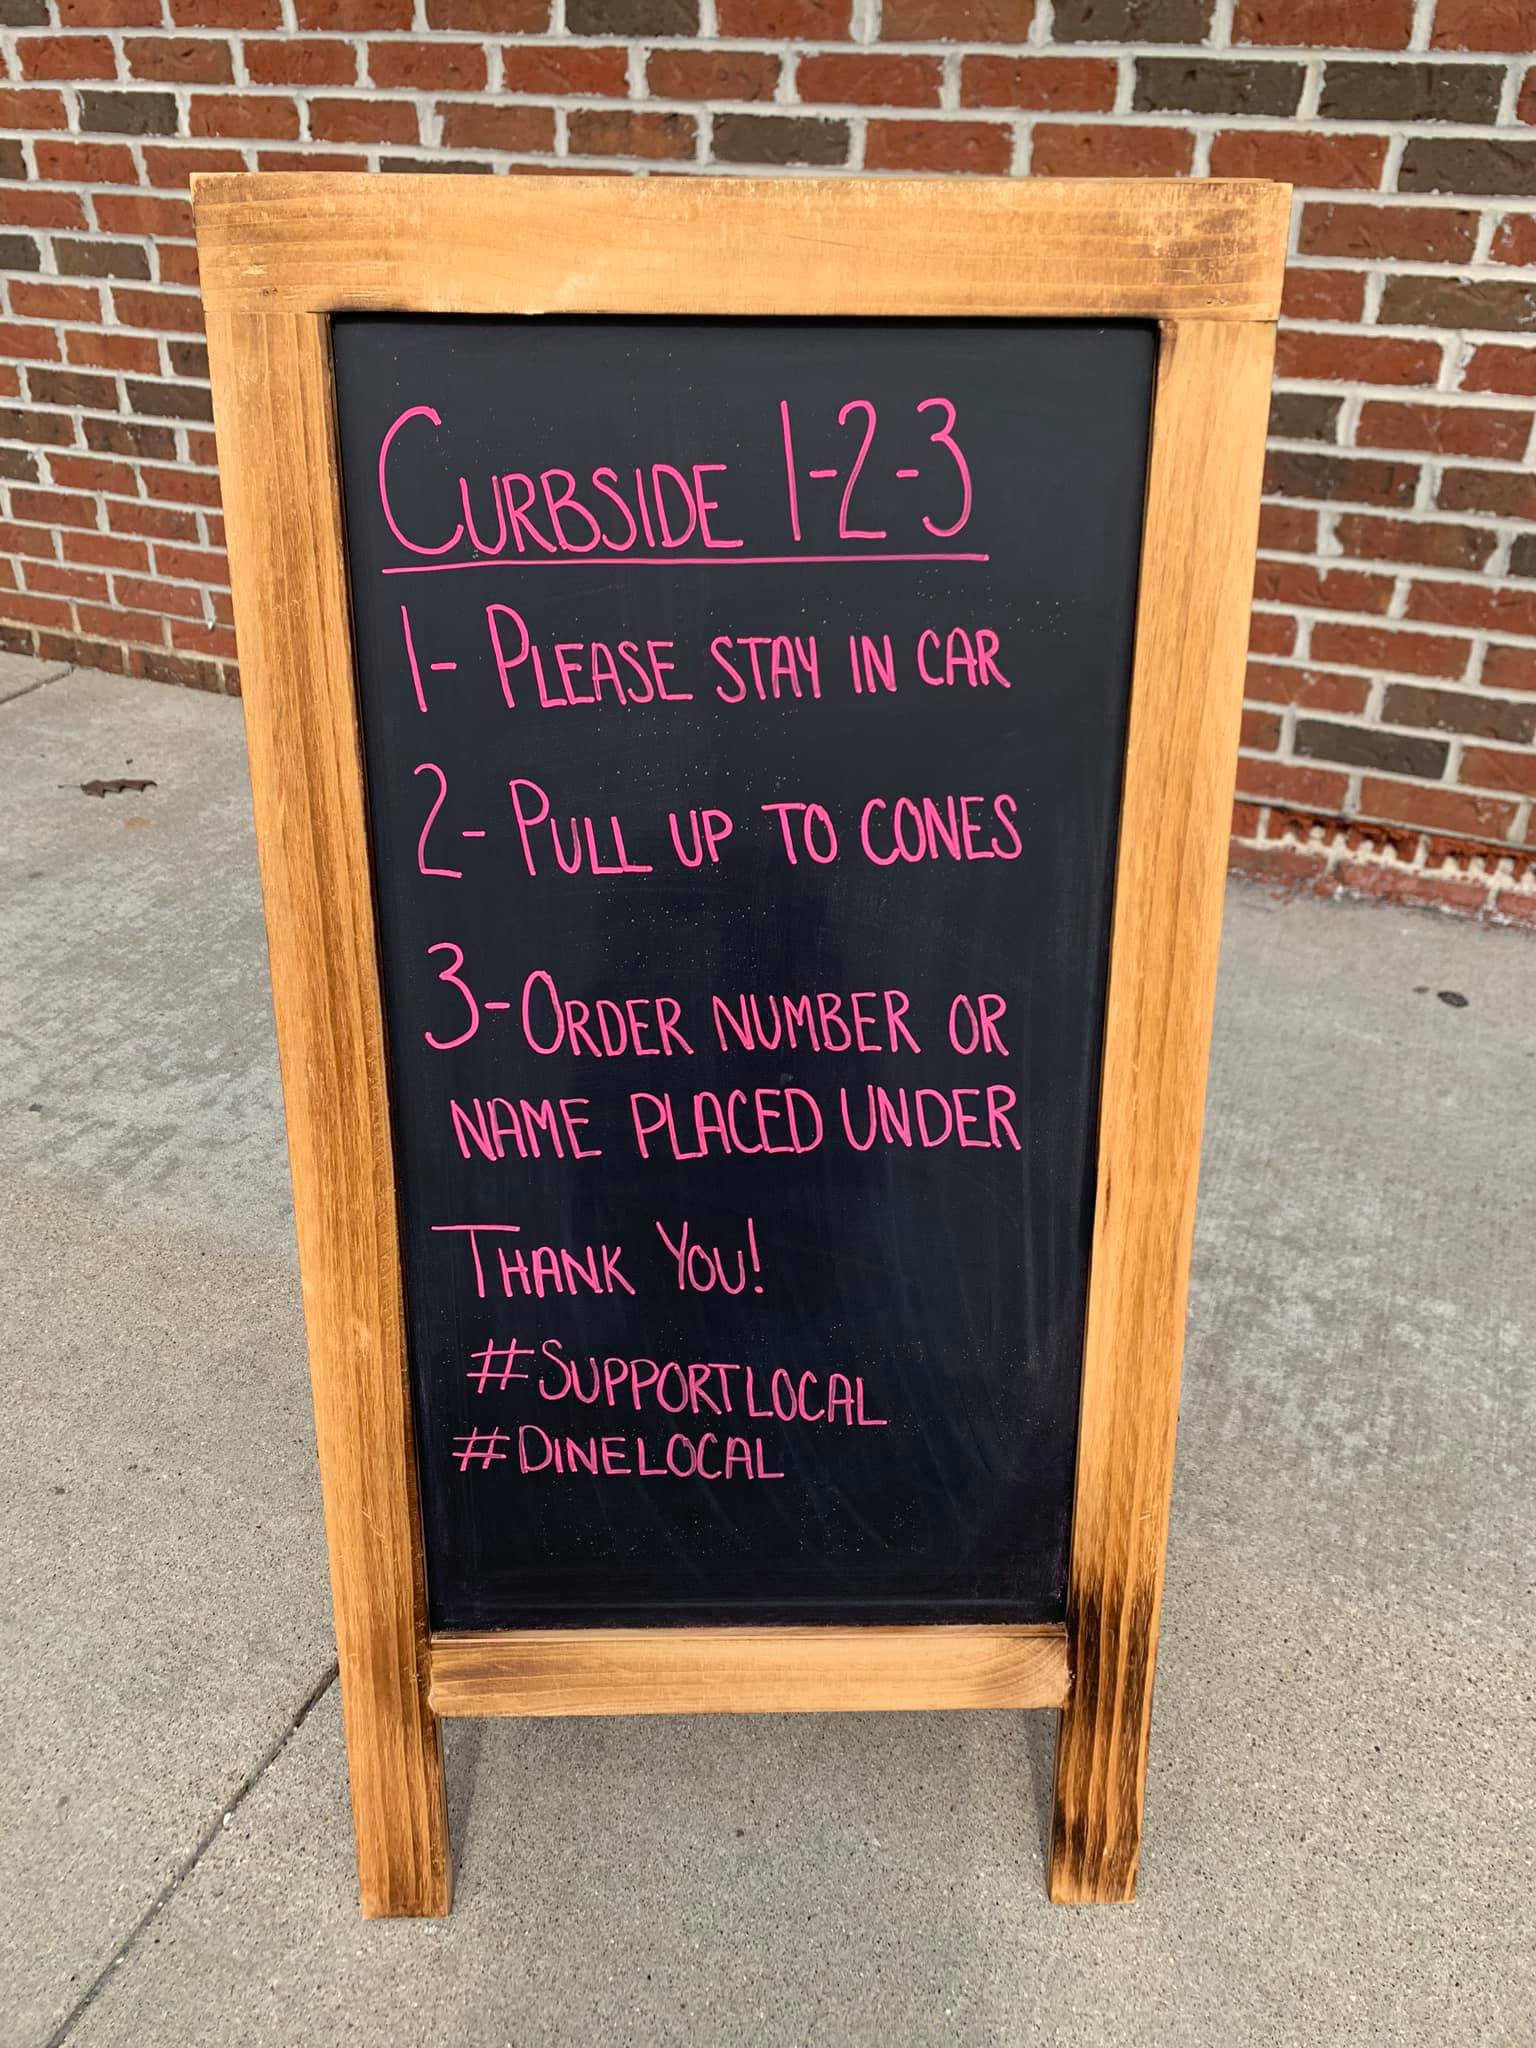 CURBSIDE 1-2-3
1- PLEASE STAY IN CAR
2- PULL UP TO CONES
3- ORDER NUMBER OR
NAME PLACED UNDER
THANK YOU!
#SUPPORTLOCAL
#DINELOCAL